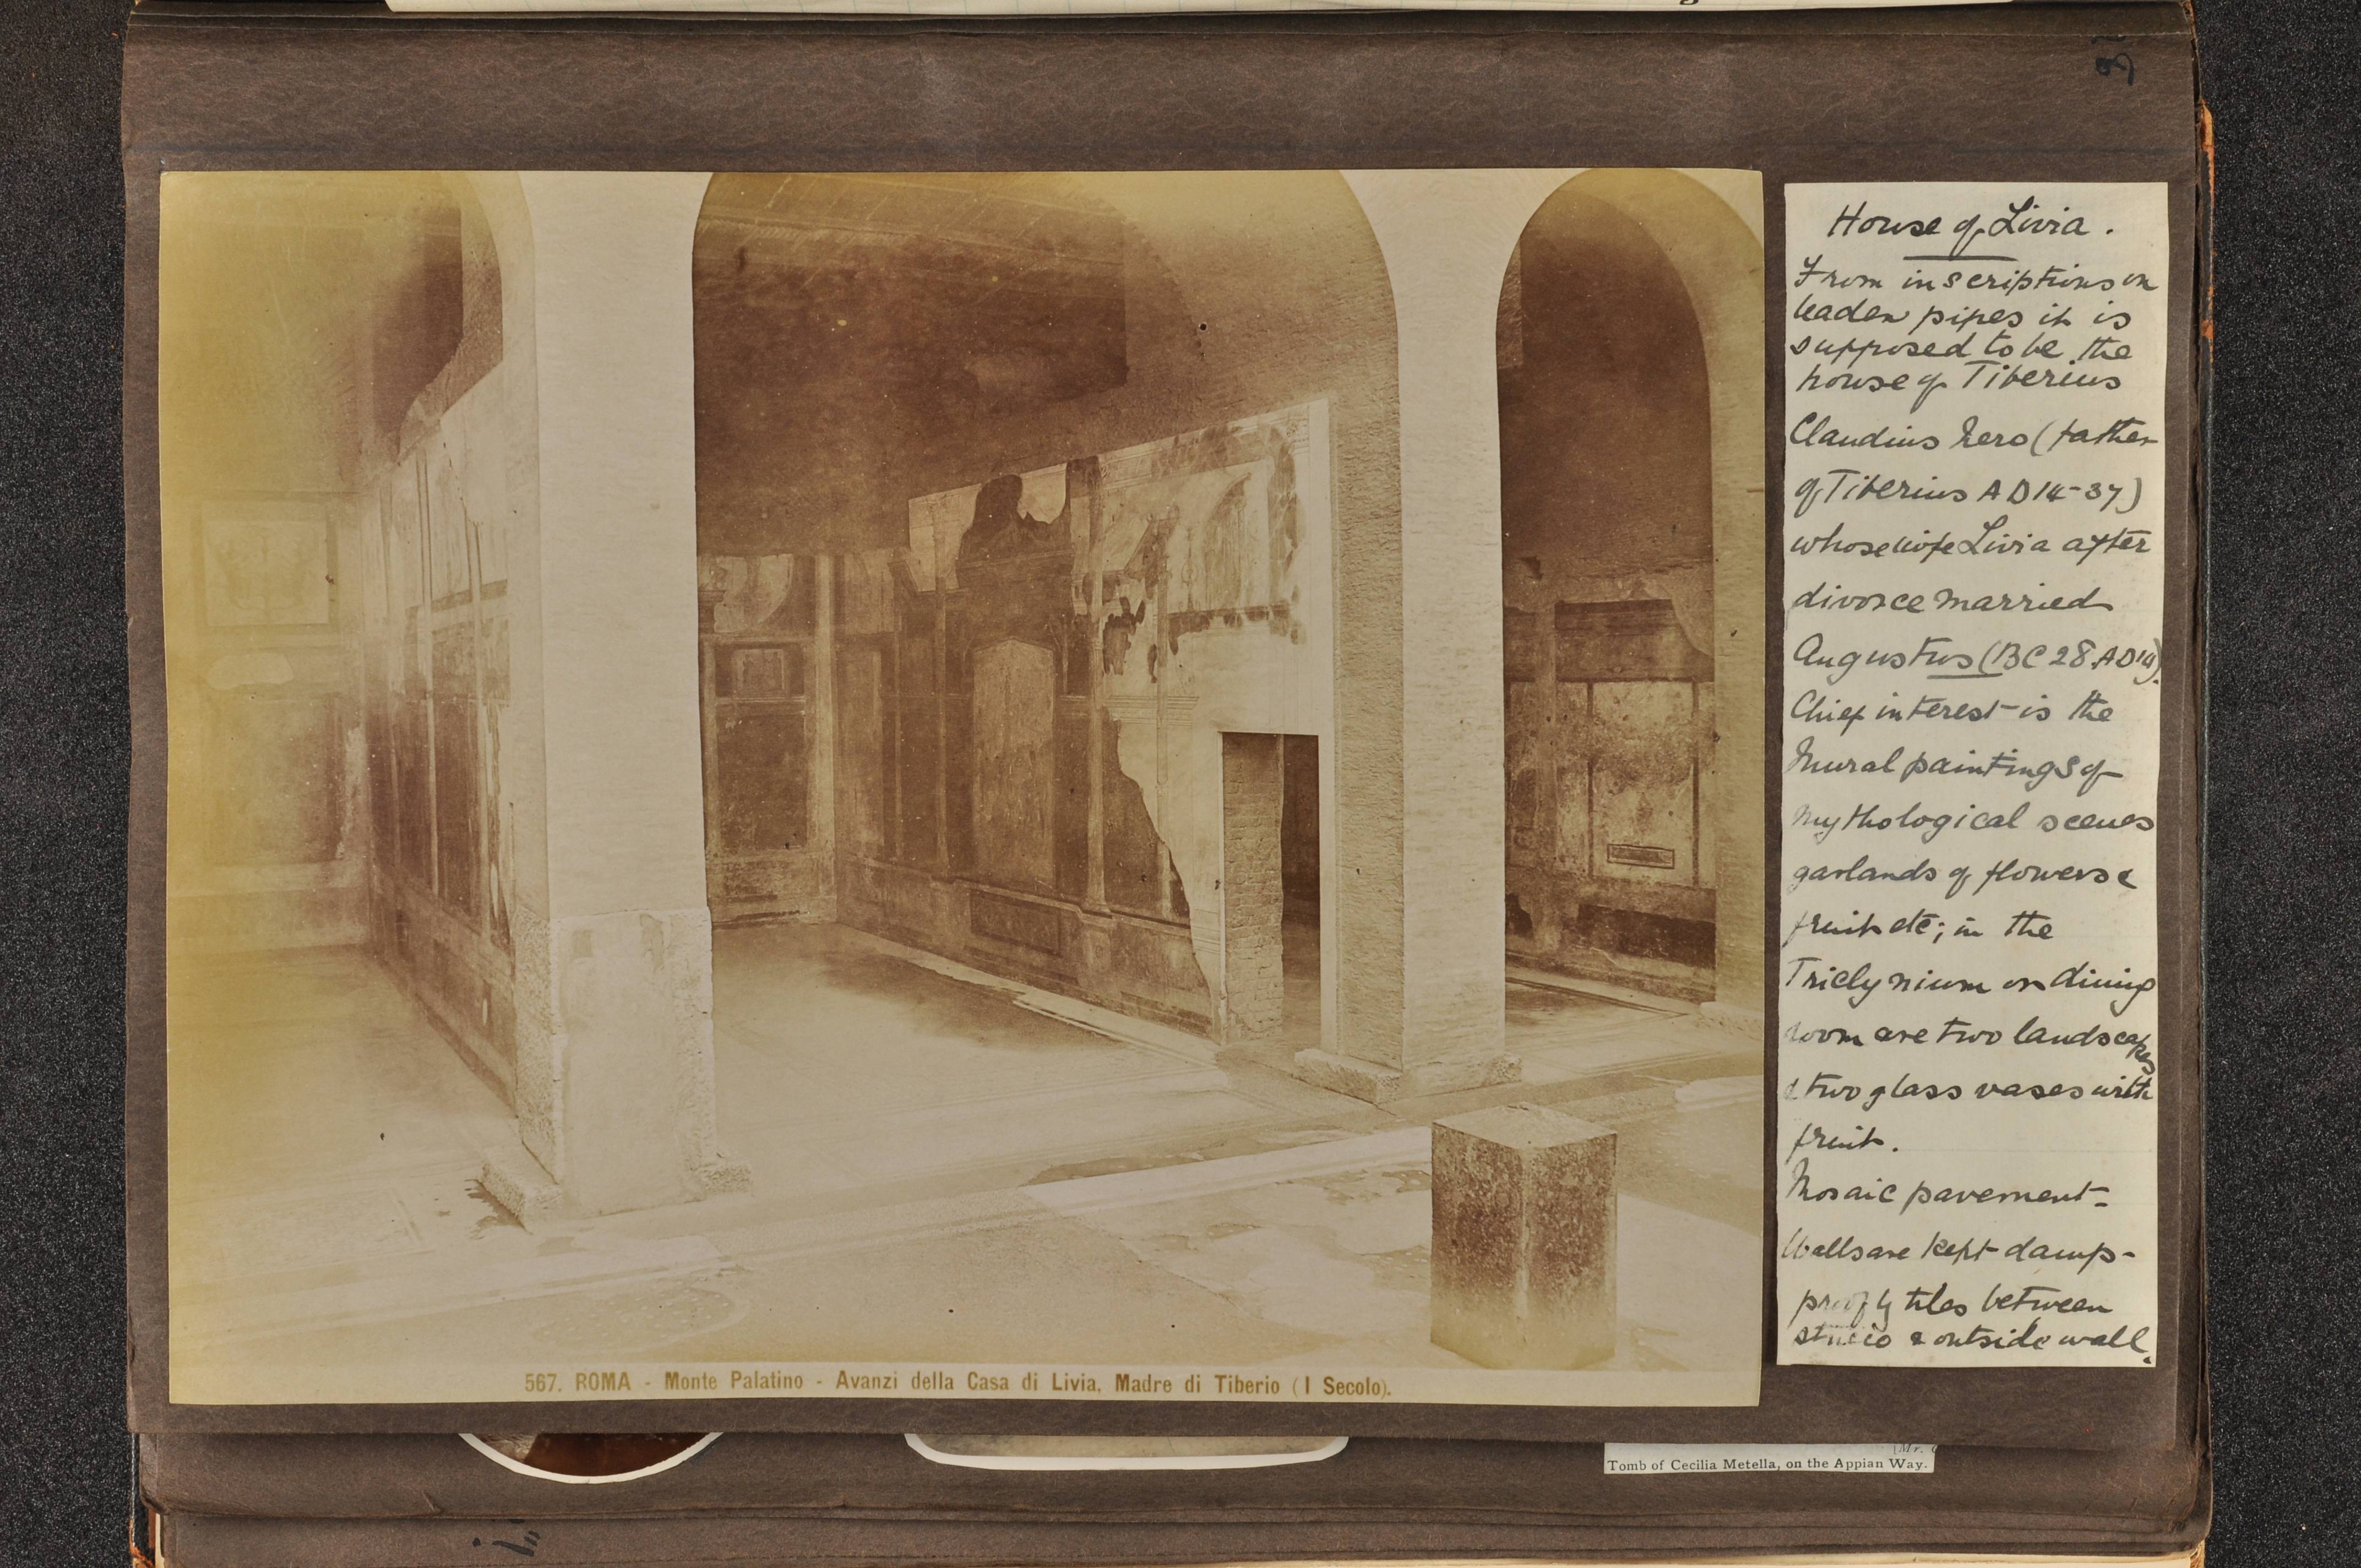 House of Livia.
From inscriptions on
leaden pipes it is
supposed to be the
house of Tiberius
Claudius Nero (father
of Tiberius AD 14-37)
whose wife Livia after
divorce married
Augustus (BC 28 AD 14).
Chief interest is the
Mural paintings of
mythological scenes
garlands of flowers &
fruit etc; in the
Triclynium or dining
room are two landscapes
& two glass vases with
fruit.
Mosaic pavement-
Walls are kept damp-
proof by tiles between
stucco & outside wall.
567. ROMA - Monte Palatino - Avanzi della Casa di Livia, Madre di Tiberio (I Secolo).
(Mr.
Tomb of Cecilia Metella, on the Appian Way.